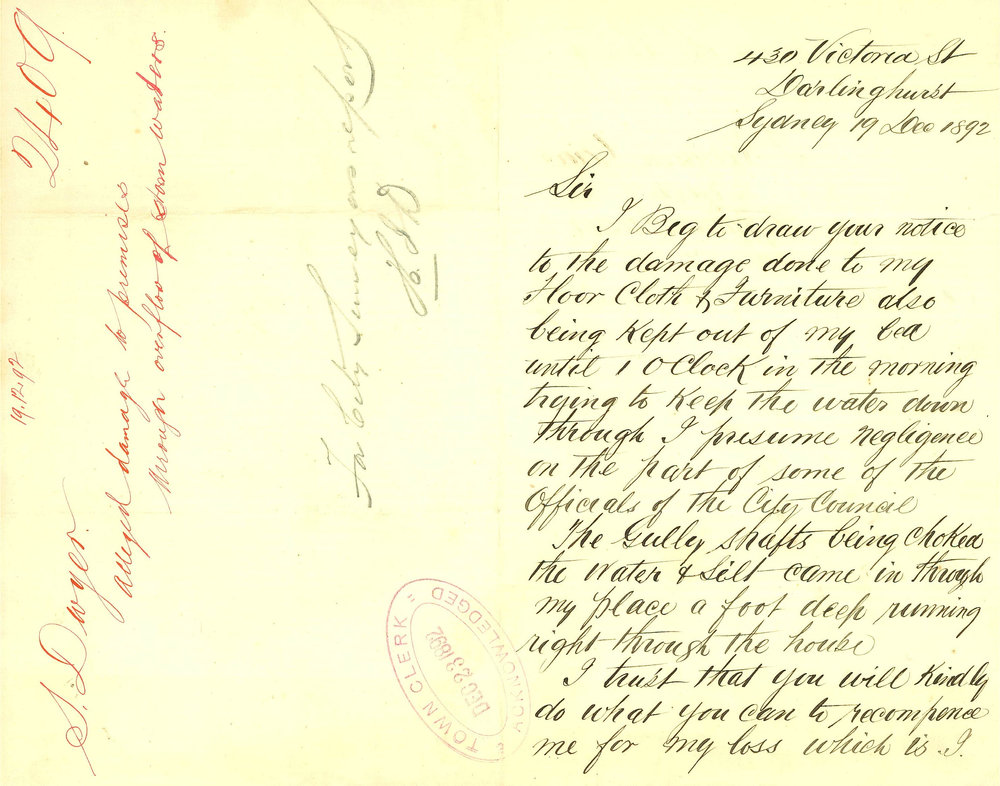 2409
19.12.92
S. Dwyer.
alleged damage to premises
through overflow of storm waters.
For City Surveyors report
TOWN CLERK'S
ACKNOWLEDGED
DEC 23 1892
430 Victoria St
Darlinghurst
Sydney 19 Dec 1892
Sir
I Beg to draw your notice
to the damage done to my
Floor Cloth & Furniture also
being Kept out of my bed
until 1 OClock in the morning
trying to Keep the water down
through I presume negligence
on the part of some of the
Officials of the City Council
The Gully shafts being choked
the water & Silt came in through
my place a foot deep running
right through the house
I trust that you will Kindly
do what you can to recompence
me for my loss which is. I.